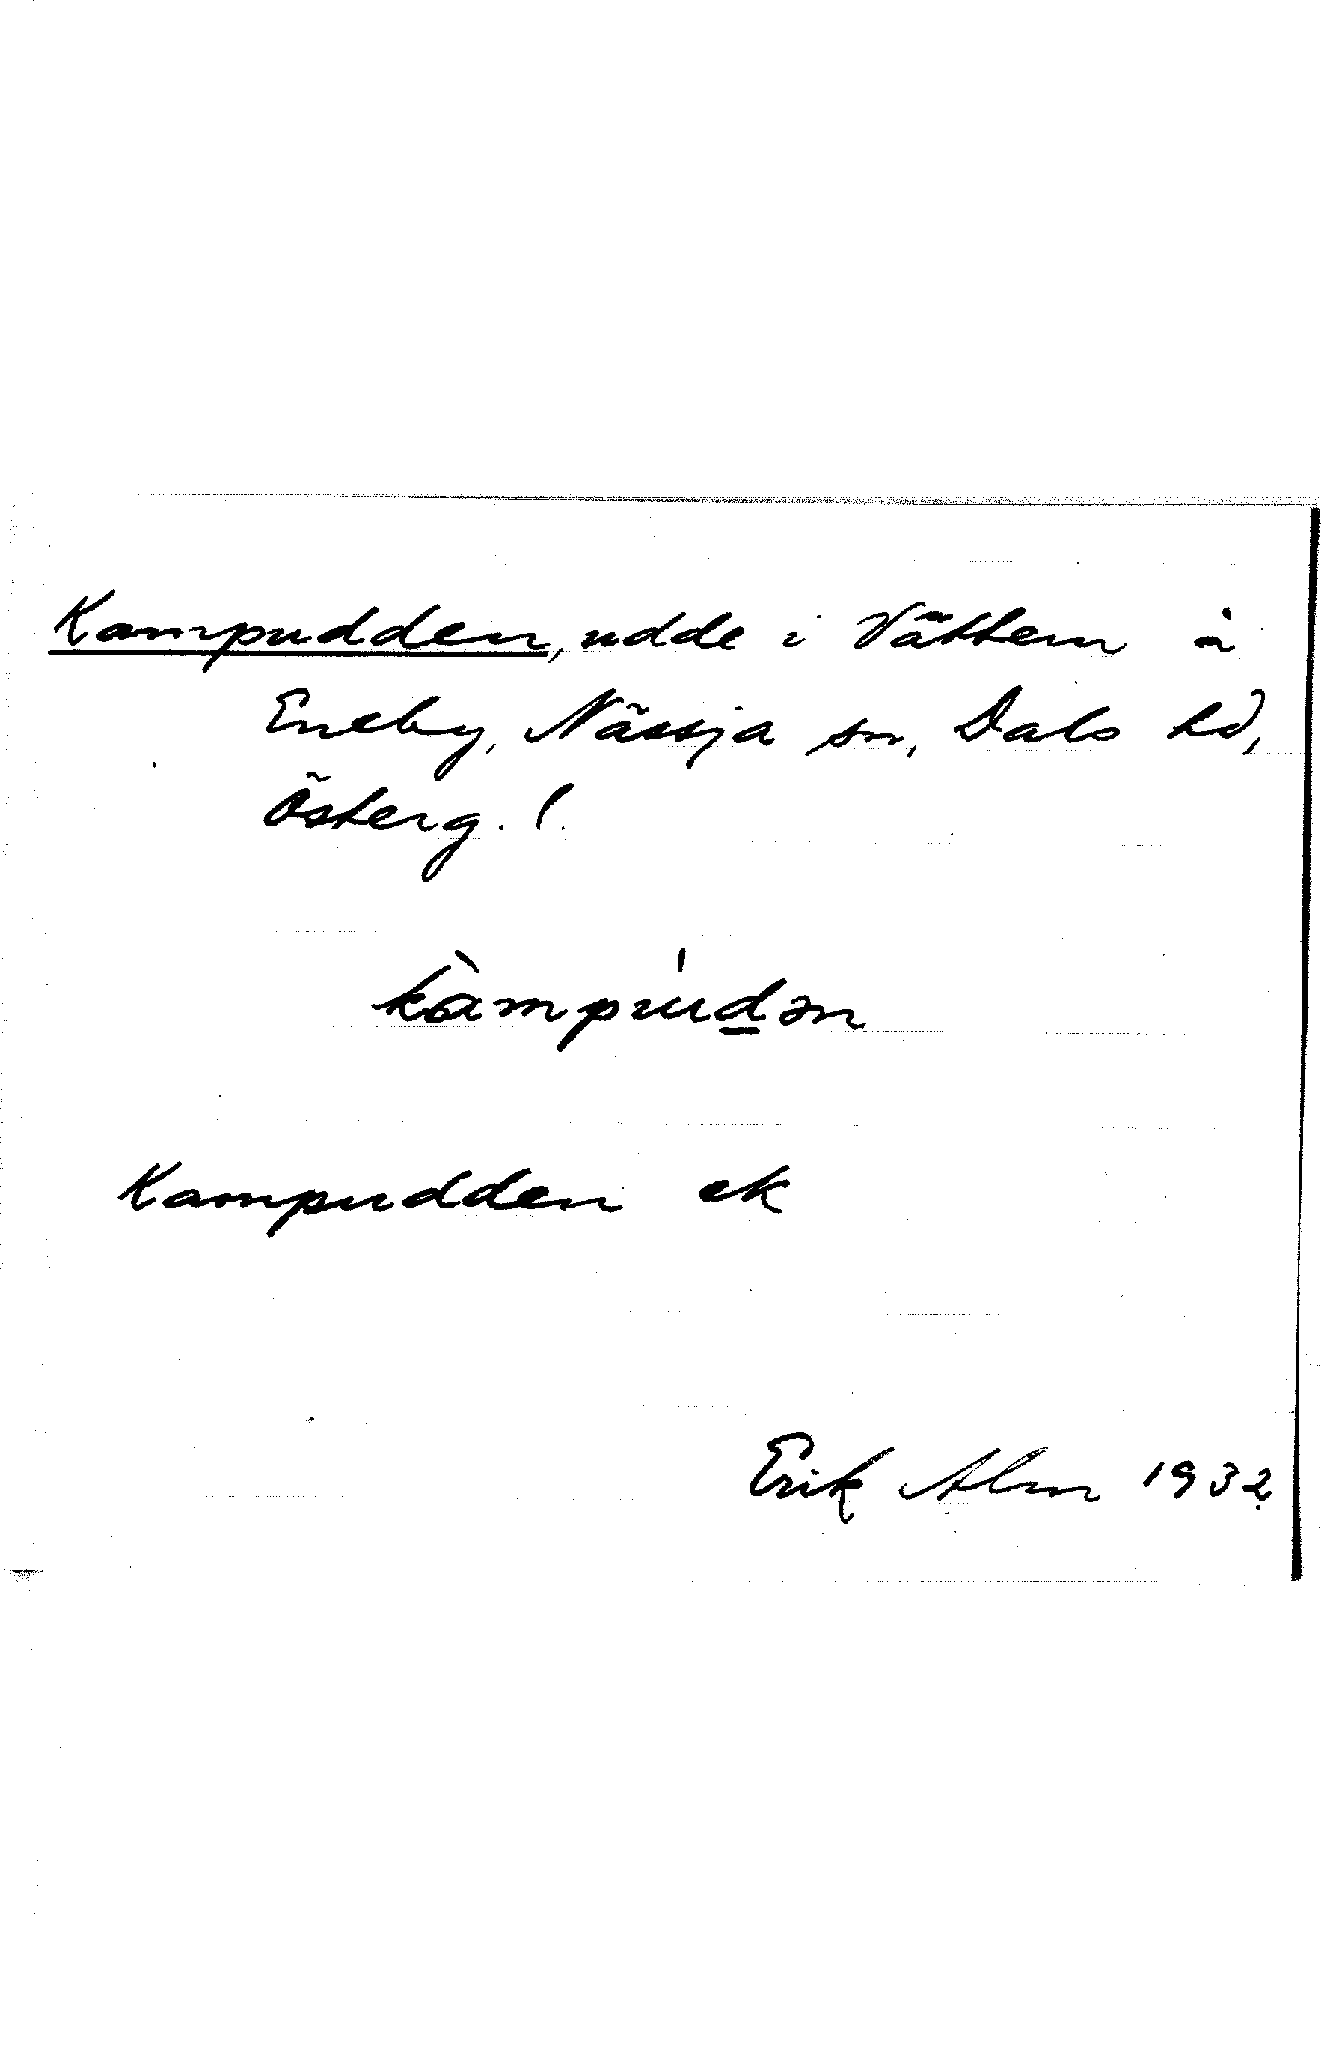 Kampudden, udde i Vättern å
Eneby, Nässja sn, Dals hd,
Österg. (.
kàmpúdən
Kampudden ek
Erik Alm 1932